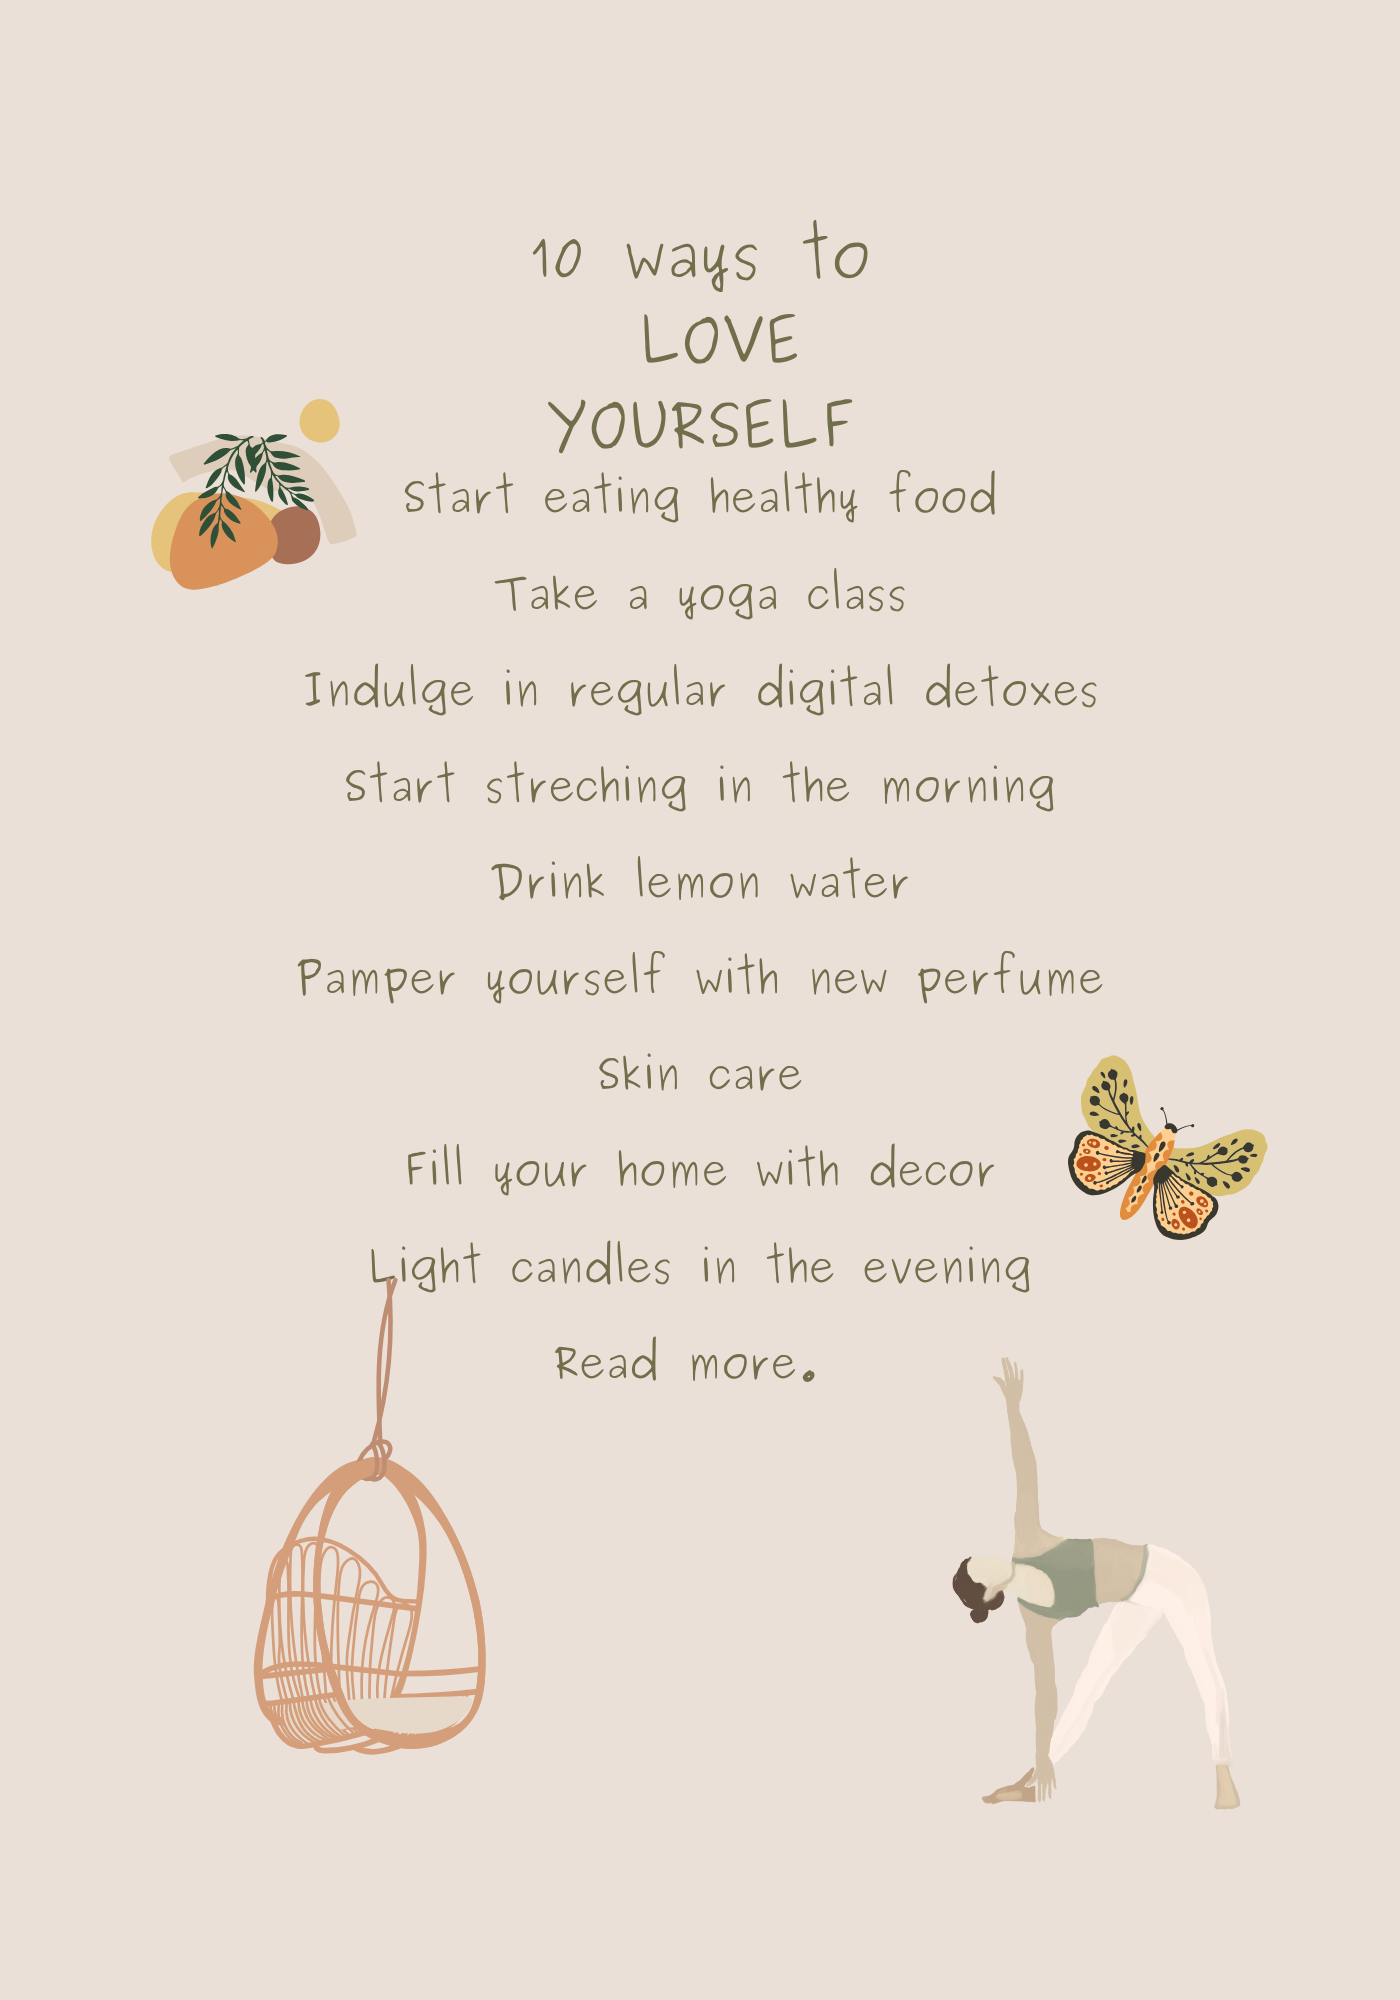 10 ways to
LOVE
YOURSELF
Start eating healthy food
Take a yoga class
Indulge in regular digital detoxes
Start streching in the morning
Drink lemon water
Pamper yourself with new perfume
Skin care
Fill your home with decor
Light candles in the evening
Read more.